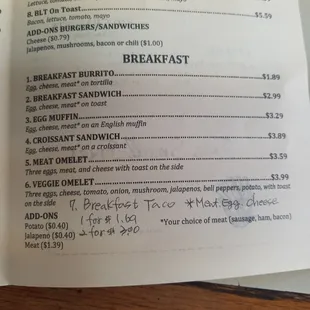 Lettuce, tomato, mayo
8. BLT On Toast........$5.59
Bacon, lettuce, tomato, mayo
ADD-ONS BURGERS/SANDWICHES
Cheese ($0.79)
Jalapenos, mushrooms, bacon or chili ($1.00)
BREAKFAST
1. BREAKFAST BURRITO........$1.89
Egg, cheese, meat* on tortilla
2. BREAKFAST SANDWICH........$2.99
Egg, cheese, meat* on toast
3. EGG MUFFIN........$3.29
Egg, cheese, meat* on an English muffin
4. CROISSANT SANDWICH........$3.89
Egg, cheese, meat* on a croissant
5. MEAT OMELET........$3.59
Three eggs, meat, and cheese with toast on the side
6. VEGGIE OMELET........$3.99
Three eggs, cheese, tomato, onion, mushroom, jalapenos, bell peppers, potato, with toast
on the side
7. Breakfast Taco *Meat. Egg. cheese
ADD-ONS
1 for $1.69
*Your choice of meat (sausage, ham, bacon)
Potato ($0.40)
2 for $3.00
Jalapeno ($0.40)
Meat ($1.39)